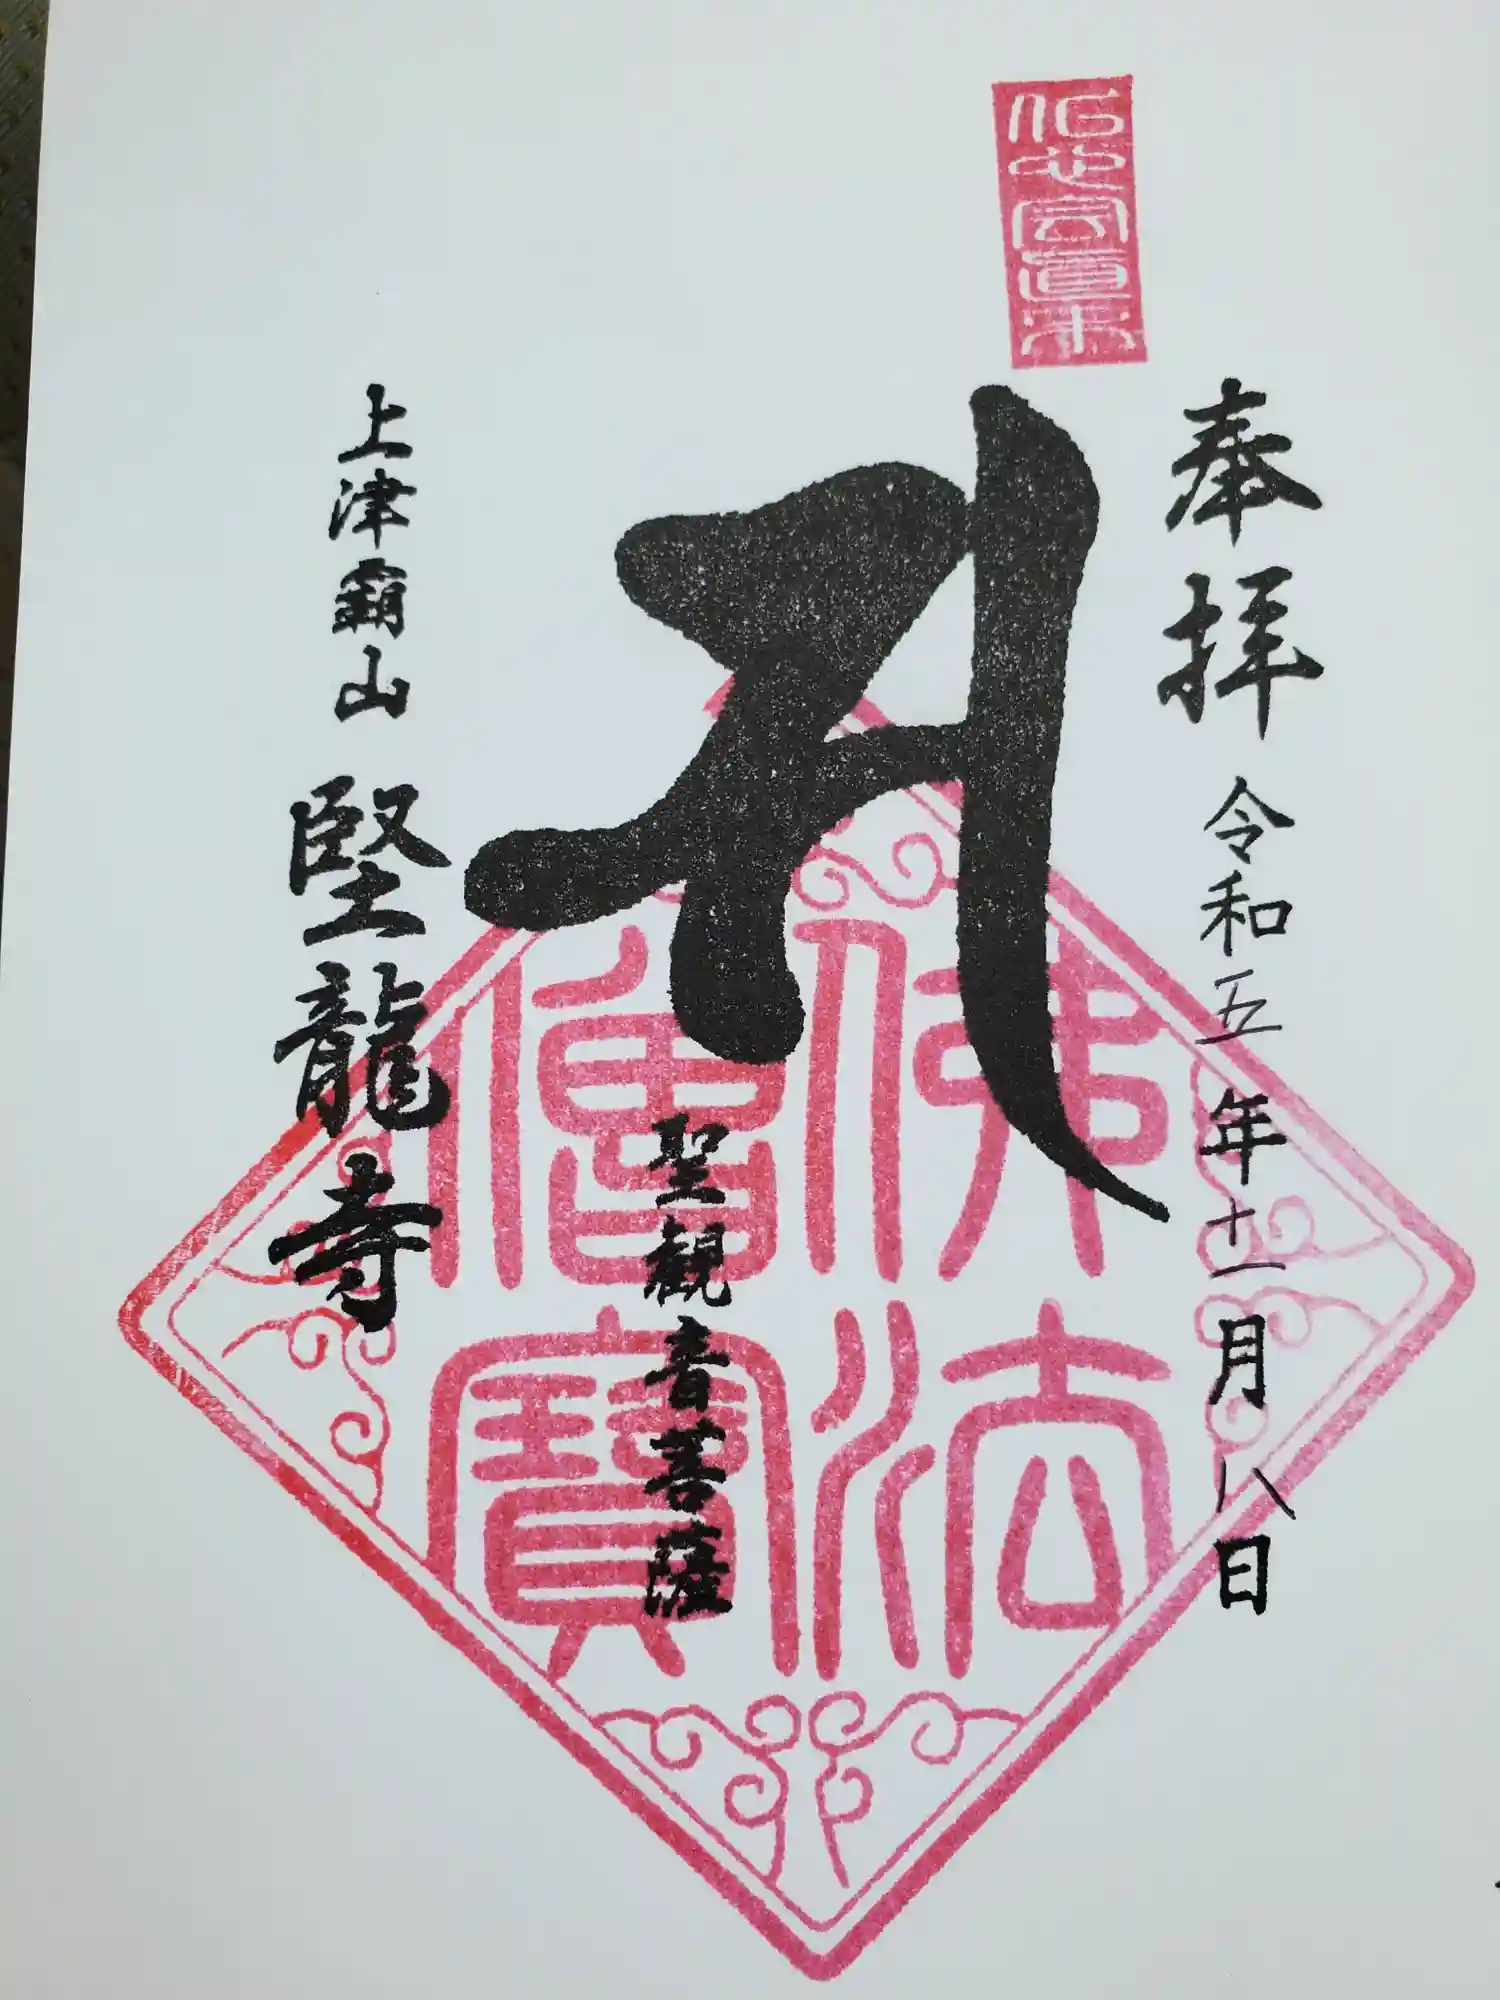 奉拝 令和五年十一月八日
𑖭
佛法僧寶
聖觀音菩薩
上津霸山 堅龍寺